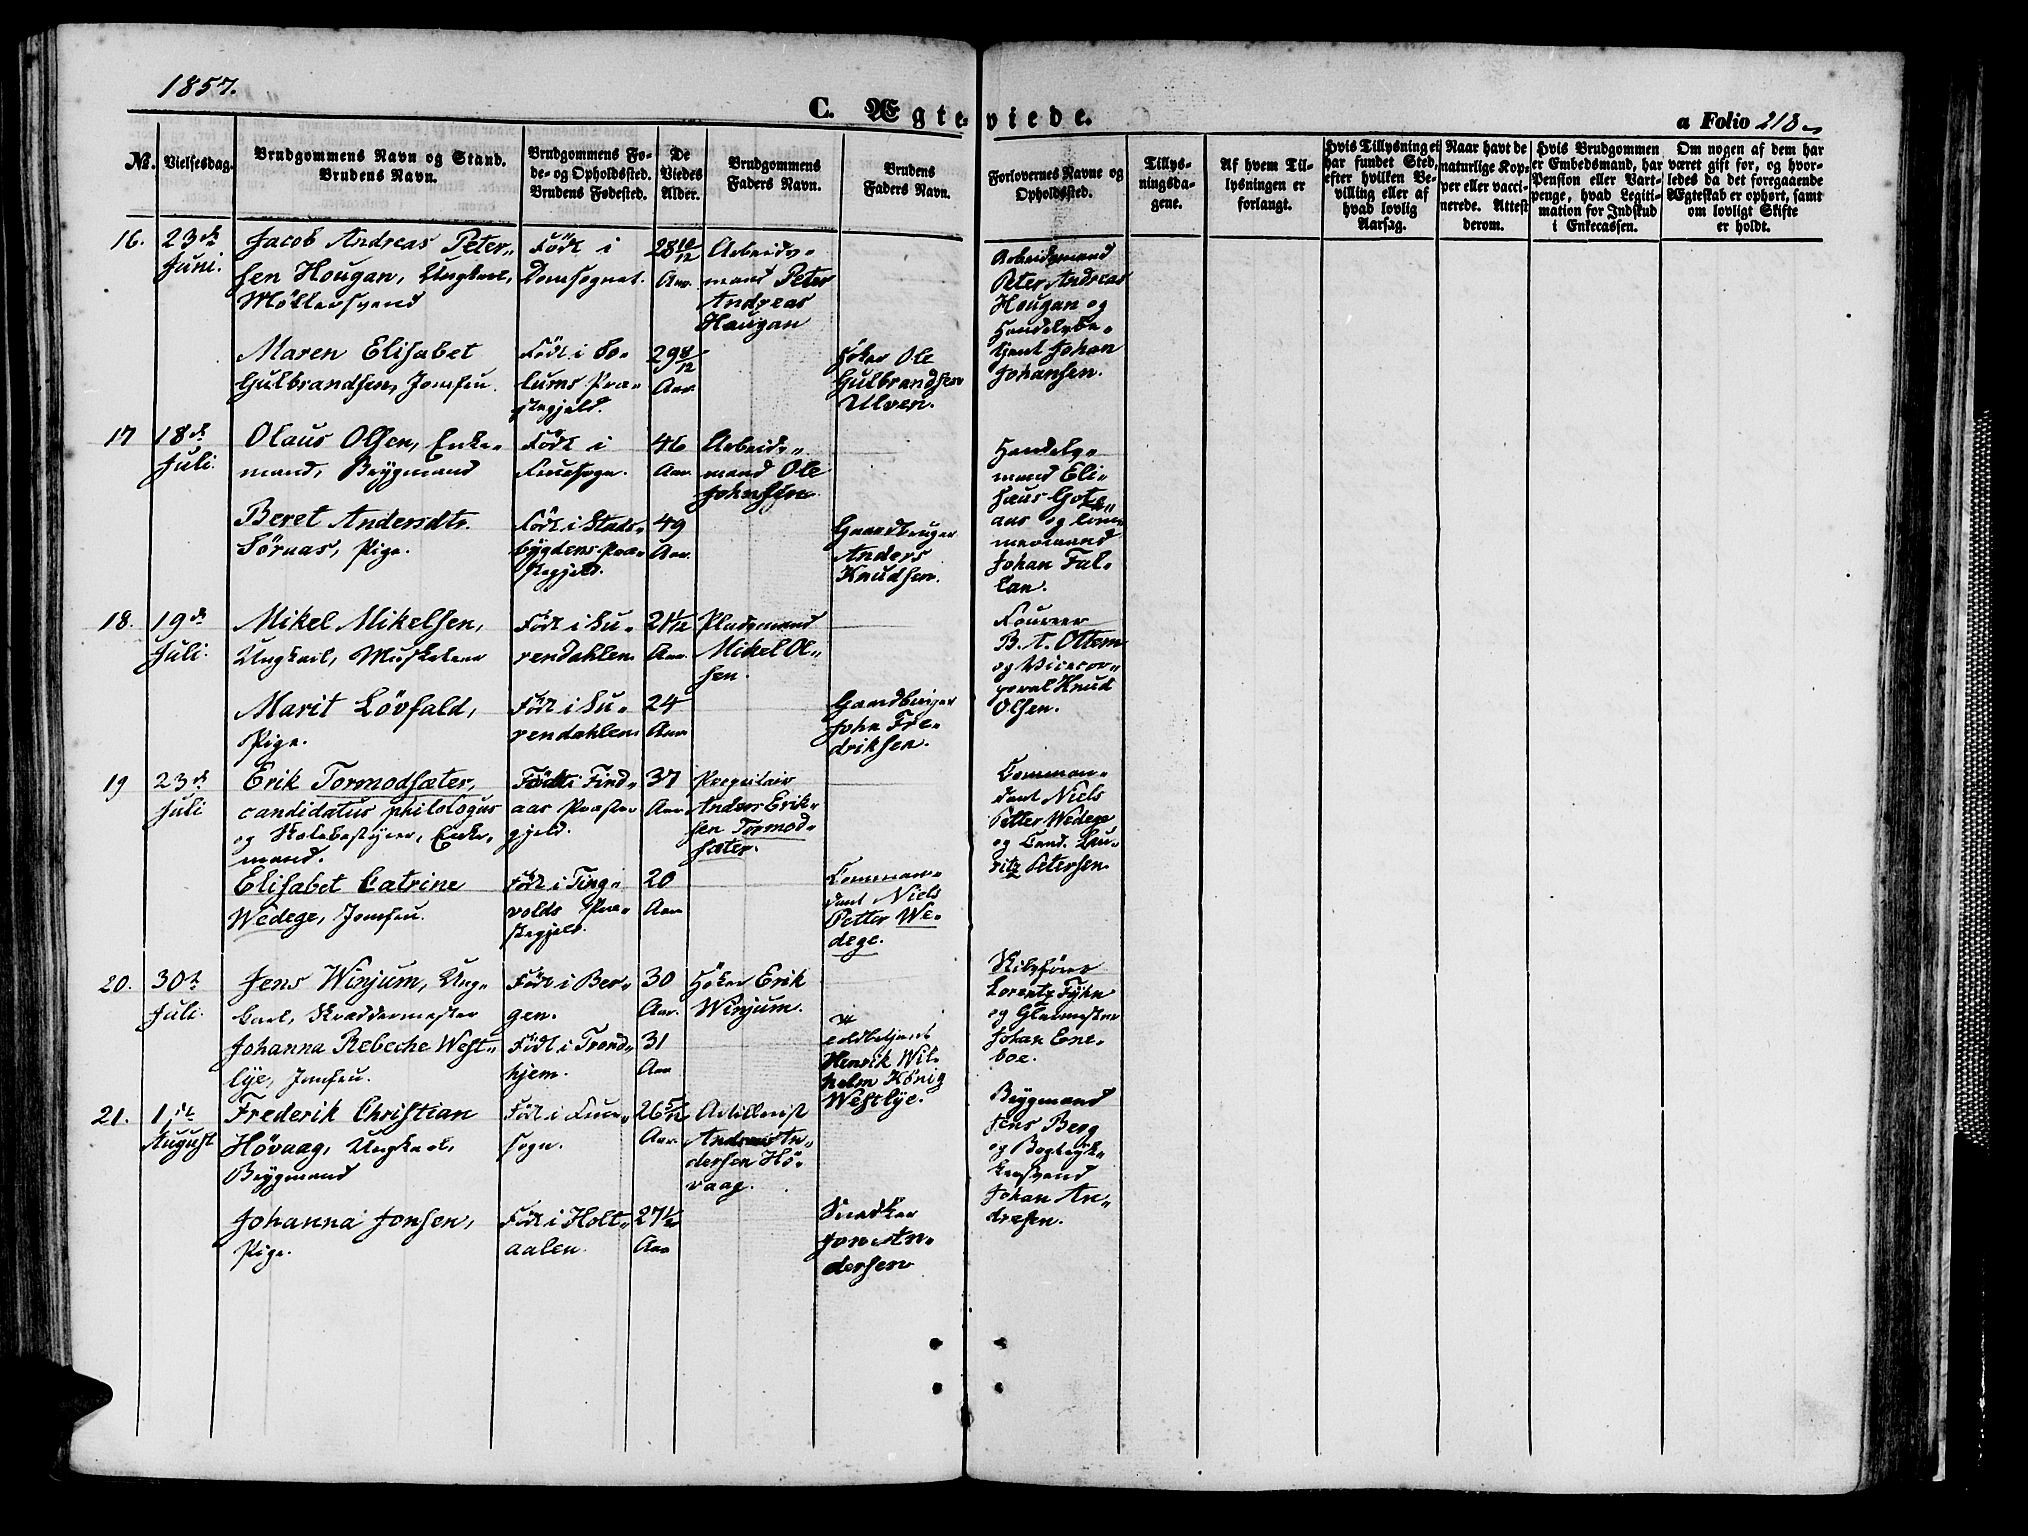 1857.
C. Ægteviede.
a Folio 218
No. Vielsesdag. Brudgommens Navn og Stand. Brudens Navn.
Brudgommens Føde- og Opholdssted. Brudens Fødested.
De Viedes Alder.
Brudgommens Faders Navn.
Brudens Faders Navn.
Forlovernes Navne og Opholdssted.
Tillysningsdagene.
Af hvem Tillysningen er forlangt.
Hvis Tillysning ei har fundet Sted, efter hvilken Bevilling eller af hvad lovlig Aarsag.
Naar havt de naturlige Kopper eller vaccinerede. Attest derom.
Hvis Brudgommen er Embedsmand, har Pension eller Vartpenge, hvad Legitimation for Indskud i Enkecassen.
Om nogen af dem har været gift før, og hvorledes da det foregaaende Ægteskab er ophørt, samt om lovligt Skifte er holdt.
16. 23de Juni.
Jacob Andreas Peter-
sen Hougan, Ungkarl,
Möllersvend
Födt i
Domsognet.
28 10/12
Aar
Arbeids-
mand Peter
Andreas
Hougan
Arbeidsmand
Peter Andreas
Hougan og
Handelsbe-
tjent Johan
Johansen.
Maren Elisabet
Gulbrandsen, Jomfru.
Födt i So-
lums Præ-
stegjeld.
29 8/12
Aar
Höker Ole
Gulbrandsen
Ulven.
17 18de Juli.
Olaus Olsen, Enke-
mand, Brygmand
Födt i
Fruesogn.
46
Aar
Arbeids-
mand Ole
Johnsen.
Handels-
mand Eli-
sæus Gota-
aas og
Johan Fal-
lan.
Beret Andersdtr.
Sörnas, Pige.
Födt i Stads-
bygdens Præ-
stegjeld.
49
Aar.
Gaardbruger
Anders
Knudsen.
18. 19de Juli.
Mikel Mikelsen,
Ungkarl, Musketeer
Födt i Su-
rendahlen
Aar.
Pladsmand
Mikel Ol-
sen.
Foureer
B. A. Ottem
og Vicecor-
poral Knud
Olsen.
Marit Lövfald,
Pige.
Födt i Su-
rendahlen
24
Aar
Gaardbruger
John Fre-
driksen.
19 23de Juli
Erik Tormodsæter,
candidatus philologus
og Skolebestyrer, Enke-
mand.
Födt i Find-
aas Præste-
gjeld.
37
Aar.
Anders Erik-
sen Tormod-
sæter.
Comman-
dant Niels
Petter Wedege
og Cand. Lau-
ritz Petersen.
Elisabet Catrine
Wedege, Jomfru.
Födt i Ting-
volds Præ-
stegjeld.
20
Aar
Comman-
dant Niels
Petter We-
dege.
20. 30te Juli.
Jens Winjum, Ung-
karl, Skræddermester
Födt i Ber-
gen.
30
Aar.
Höker Erik
Winjum.
Lorentz Fyhn
og Glarmester
Johan Ene-
boe.
Johanna Rebecke West-
lye, Jomfru.
Födt i Trond-
hjem.
31
Aar
Toldbetjent
Henrik Wil-
helm König
Westlye.
21. 1ste August
Frederik Christian
Hövaag, Ungkarl,
Brygmand
Födt i Frue-
sogn.
26 5/12
Aar.
Artillerist
Andreas An-
dersen Hö-
vaag.
Brygmand
Jens Berg
og Bogtryk-
kersvend
Johan An-
dresen.
Johanna Jonsen,
Pige.
Födt i Holt-
aalen.
Aar
Snedker
Jon An-
dersen